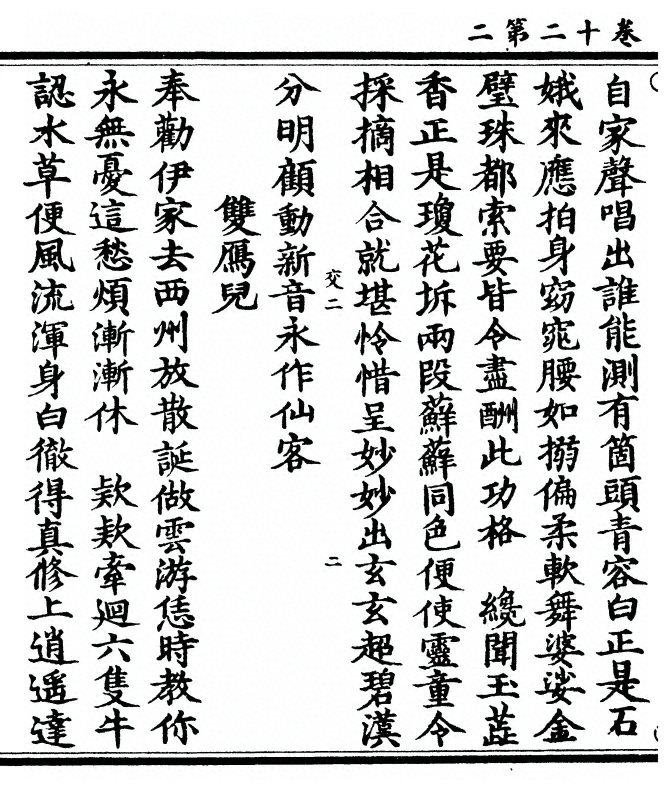 卷十二第二
自家聲唱出誰能測有箇頭青容白正是石
娥來應拍身窈窕腰如搦偏柔軟舞婆娑金
璧珠都索要皆令盡酬此功格　纔聞玉蕋
香正是瓊花坼兩段蘇蘇同色便使靈童令
採摘相合就堪怜惜呈妙妙出玄玄超碧漢
交二　二
分明顧動新音永作仙客
雙鴈兒
奉勸伊家去西州放散誕做雲游恁時教你
永無憂這愁煩漸漸休　欵欵牽迴六隻牛
認水草便風流渾身白徹得真修上逍遥達